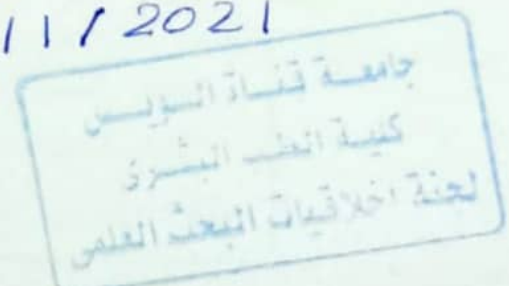 11/2021
جامعة قناة السويس
كلية الطب البشرى
لجنة اخلاقيات البحث العلمى